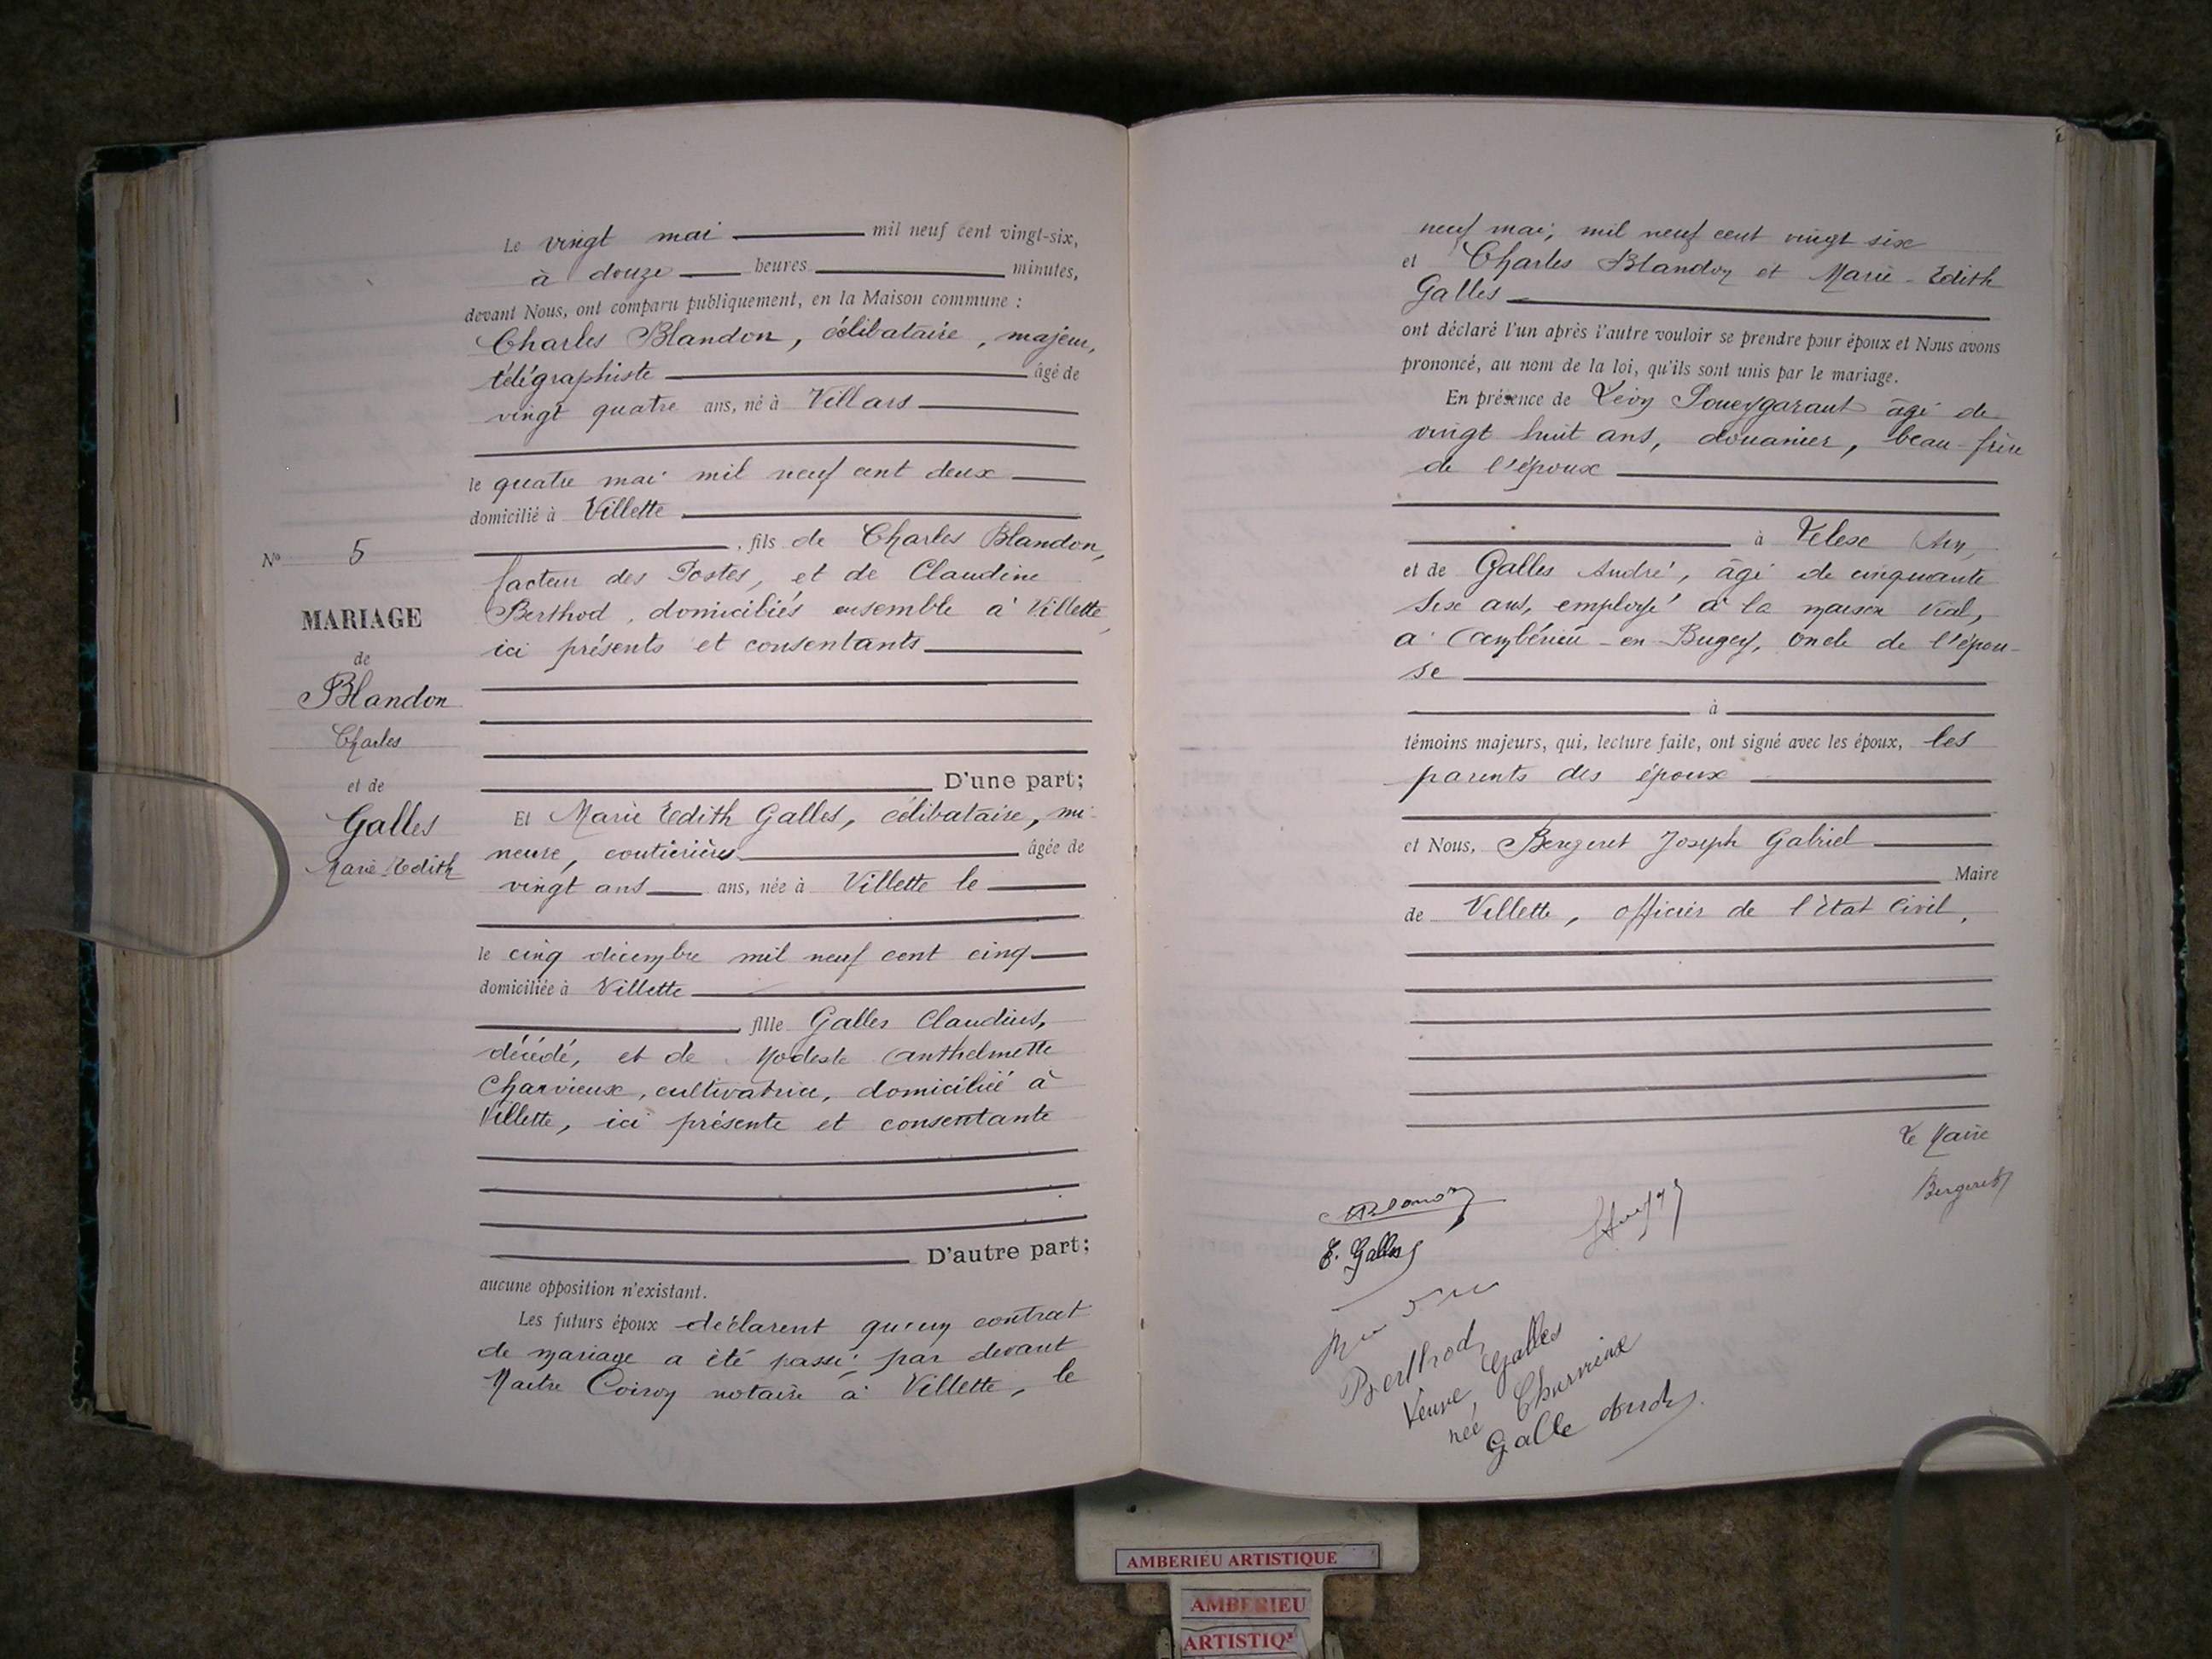 Le vingt mai mil neuf cent vingt-six,
à douze heures minutes,
devant Nous, ont comparu publiquement, en la Maison commune :
Charles Blandon, célibataire, majeur,
télégraphiste âgé de
vingt quatre ans, né à Villars
le quatre mai mil neuf cent deux
domicilié à Villette
, fils de Charles Blandon,
facteur des Postes, et de Claudine
Berthod, domiciliés ensemble à Villette,
ici présents et consentants
D'une part;
Et Marie Edith Galles, célibataire, mi-
neure, couturière âgée de
vingt ans ans, née à Villette le
le cinq décembre mil neuf cent cinq
domiciliée à Villette
, fille Galles Claudius,
décédé, et de Modeste Anthelmette
Charvieux, cultivatrice, domiciliée à
Villette, ici présente et consentante
D'autre part;
aucune opposition n'existant.
Les futurs époux déclarent qu'un contrat
de mariage a été passé par devant
Maître notaire à Villette, le
N° 5
MARIAGE
de
Blandon
Charles
et de
Galles
Marie Edith
neuf mai, mil neuf cent vingt six
et Charles Blandon et Marie-Edith
Galles
ont déclaré l'un après l'autre vouloir se prendre pour époux et Nous avons
prononcé, au nom de la loi, qu'ils sont unis par le mariage.
En présence de âgé de
vingt huit ans, douanier, beau-frère
de l'époux
à Ain,
et de Galles André, âgé de cinquante
six ans, employé à la maison Vial,
à Ambérieu-en-Bugey, oncle de l'épou-
se
à
témoins majeurs, qui, lecture faite, ont signé avec les époux, les
parents des époux
et Nous, Bergeret Joseph Gabriel
Maire
de Villette, officier de l'état civil,
Le Maire
Bergeret
Blandon
E. Galles
Berthod
Veuve Galles
née Charvieux
Galle André
AMBERIEU ARTISTIQUE
AMBERIEU
ARTISTIQ